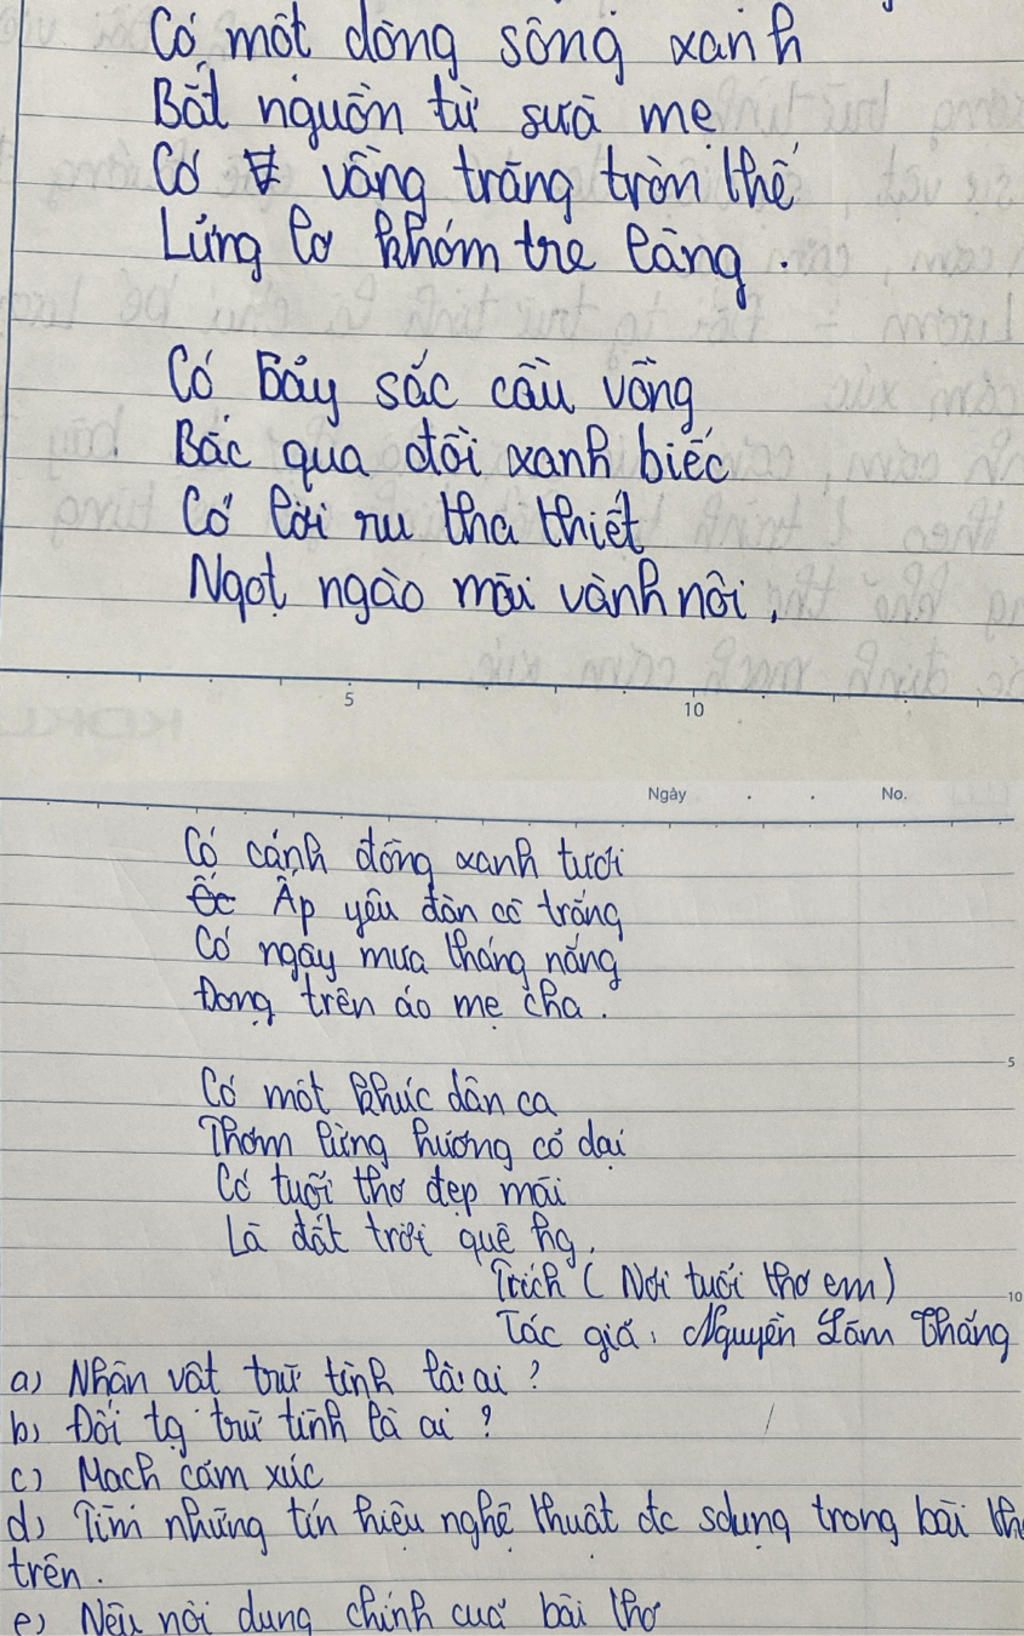 Có một dòng sông xanh
Bắt nguồn từ sữa mẹ
Có vầng trăng tròn thế
Lửng lơ khóm tre làng.
Có bảy sắc cầu vồng
Bắc qua đồi xanh biếc
Có lời ru tha thiết
Ngọt ngào mãi vành nôi.
5
10
Ngày . . No.
Có cánh đồng xanh tươi
Ấp yêu đàn cò trắng
Có ngày mưa tháng nắng
Đọng trên áo mẹ cha.
5
Có một khúc dân ca
Thơm lừng hương cỏ dại
Có tuổi thơ đẹp mãi
Là đất trời quê hg.
Trích (Nơi tuổi thơ em)
10
Tác giả: Nguyễn Lãm Thắng
a) Nhân vật trữ tình là ai?
b) Đối tg trữ tình là ai?
c) Mạch cảm xúc
d) Tìm những tín hiệu nghệ thuật đc sdụng trong bài
trên.
e) Nêu nội dung chính của bài thơ